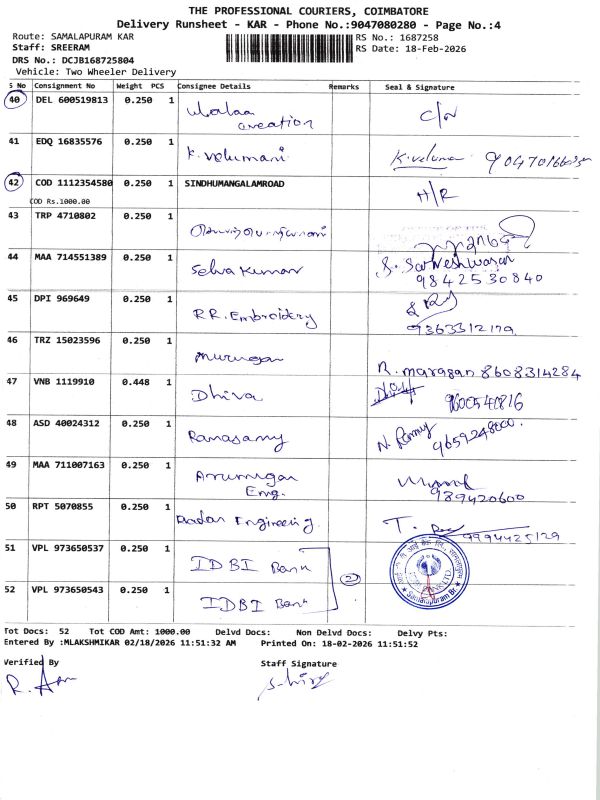 THE PROFESSIONAL COURIERS, COIMBATORE
Delivery Runsheet - KAR - Phone No.:9047080280 - Page No.:4
Route: SAMALAPURAM KAR
RS No.: 1687258
Staff: SREERAM
RS Date: 18-Feb-2026
DRS No.: DCJB168725804
Vehicle: Two Wheeler Delivery
S No Consignment No Weight PCS Consignee Details Remarks Seal & Signature
40 DEL 600519813 0.250 1 creation
41 EDQ 16835576 0.250 1 K. Velumani
42 COD 1112354580 0.250 1 SINDHUMANGALAMROAD H/R
COD Rs.1000.00
43 TRP 4710802 0.250 1
44 MAA 714551389 0.250 1 Selva Kumar S. Sarveshwaran
9842530840
45 DPI 969649 0.250 1 R.R. Embroidery
9363312179
46 TRZ 15023596 0.250 1 Murugan R. murugan 8608314284
47 VNB 1119910 0.448 1 Dhiva
48 ASD 40024312 0.250 1 Ramasamy
49 MAA 711007163 0.250 1 Arumugan
Eng.
50 RPT 5070855 0.250 1 Engineering T.
9994425129
51 VPL 973650537 0.250 1 IDBI Bank
2
52 VPL 973650543 0.250 1 IDBI Bank
Samalapuram Br
Tot Docs: 52 Tot COD Amt: 1000.00 Delvd Docs: Non Delvd Docs: Delvy Pts:
Entered By :MLAKSHMIKAR 02/18/2026 11:51:32 AM Printed On: 18-02-2026 11:51:52
Verified By Staff Signature